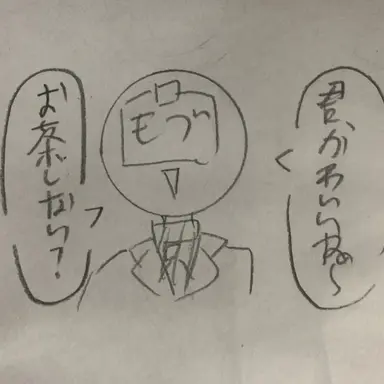 君、かわいいね〜
モブ
お茶しない?